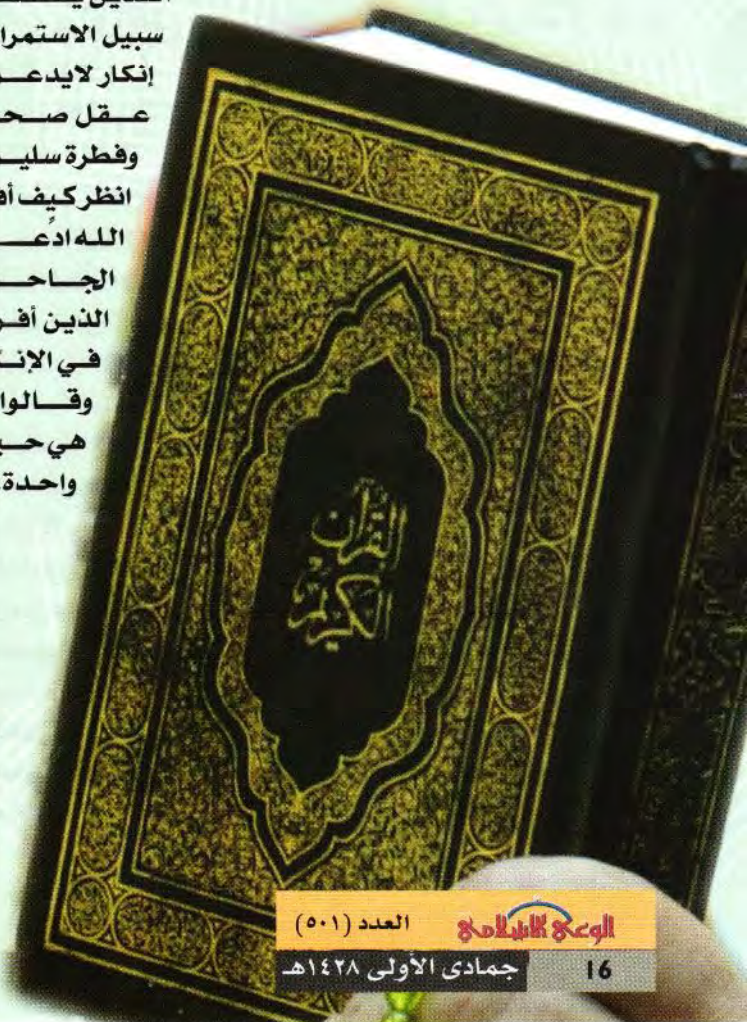 سبيل الاستمرا
إنكار لايدعـ
عـقل صـحـ
وفطرة سليـ
انظر كيف أفـ
الله ادّعـ
الجـاحـ
الذين أفـر
في الإنـ
وقـالوا
هي حيـ
واحدة
القرآن
الكريم
الوعي الإسلامي
العدد (٥٠١)
16
جمادى الأولى ١٤٢٨هـ